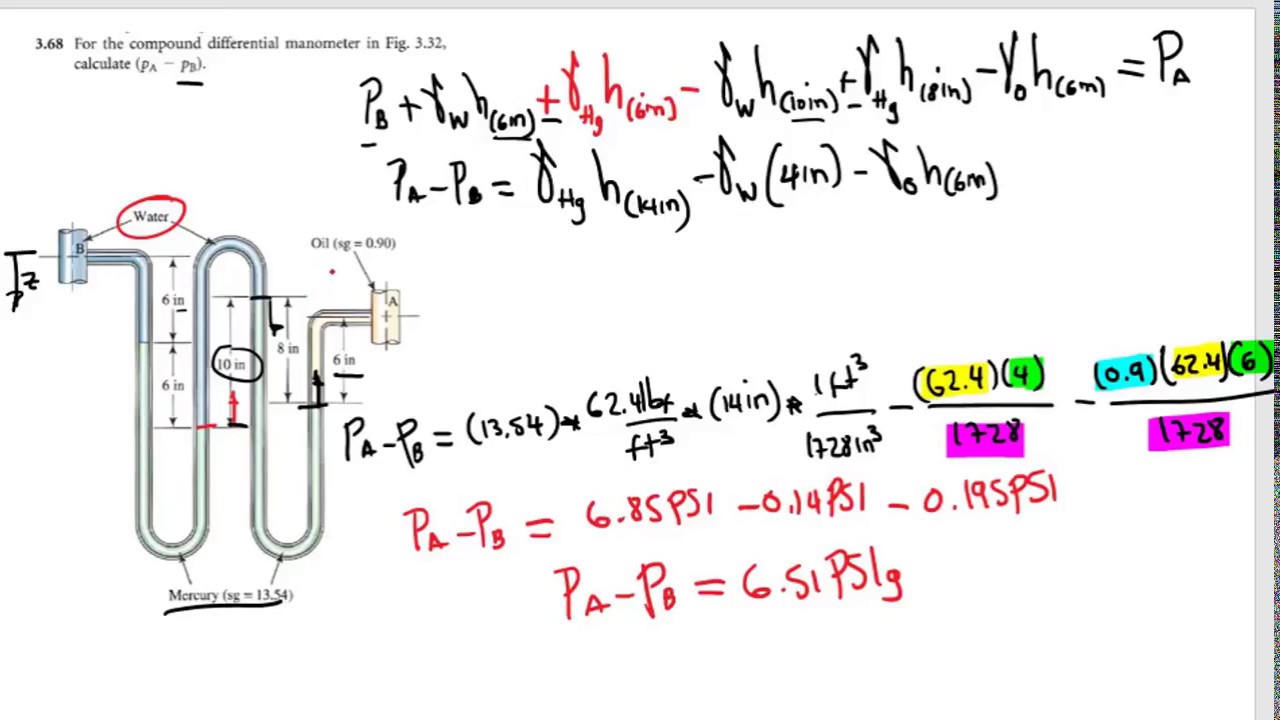 3.68 For the compound differential manometer in Fig. 3.32,
calculate (pA − pB).
PB + γw h(6in) + γHg h(6in) − γw h(10in) + γHg h(8in) − γo h(6in) = PA
PA − PB = γHg h(14in) − γw (4in) − γo h(6in)
Water
B
z
Oil (sg = 0.90)
A
6 in
10 in
8 in
6 in
6 in
Mercury (sg = 13.54)
PA − PB = (13.54) * 62.4lbf/ft³ * (14in) * 1ft³/1728in³ − (62.4)(4)/1728 − (0.9)(62.4)(6)/1728
PA − PB = 6.85PSI − 0.14PSI − 0.195PSI
PA − PB = 6.51PSIg